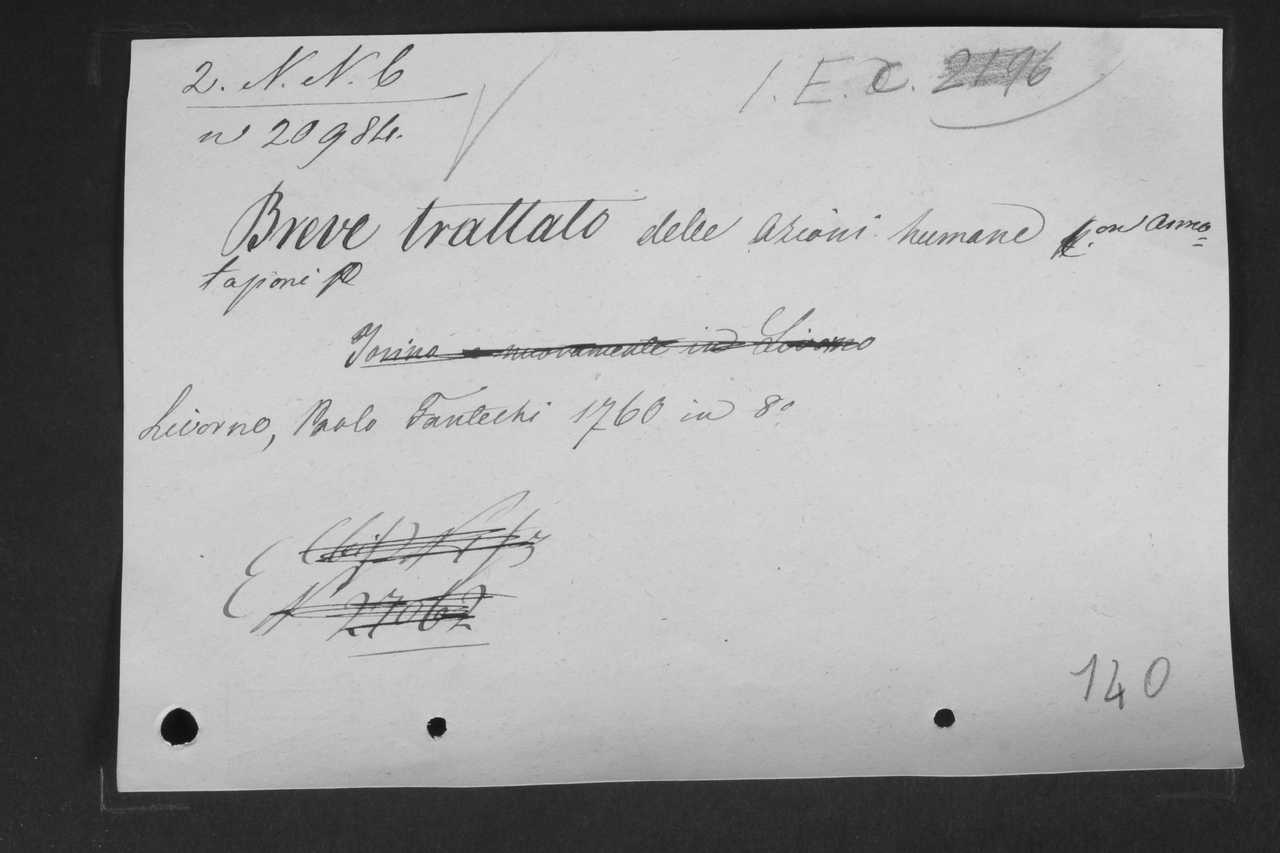 2. N. N. 6
n 20984.
1. E. C. 2196
Breve trattato delle azioni humane con anno=
tazioni
Torino e nuovamente in Livorno
Livorno, Paolo Fantechi 1760 in 8º
27062
140